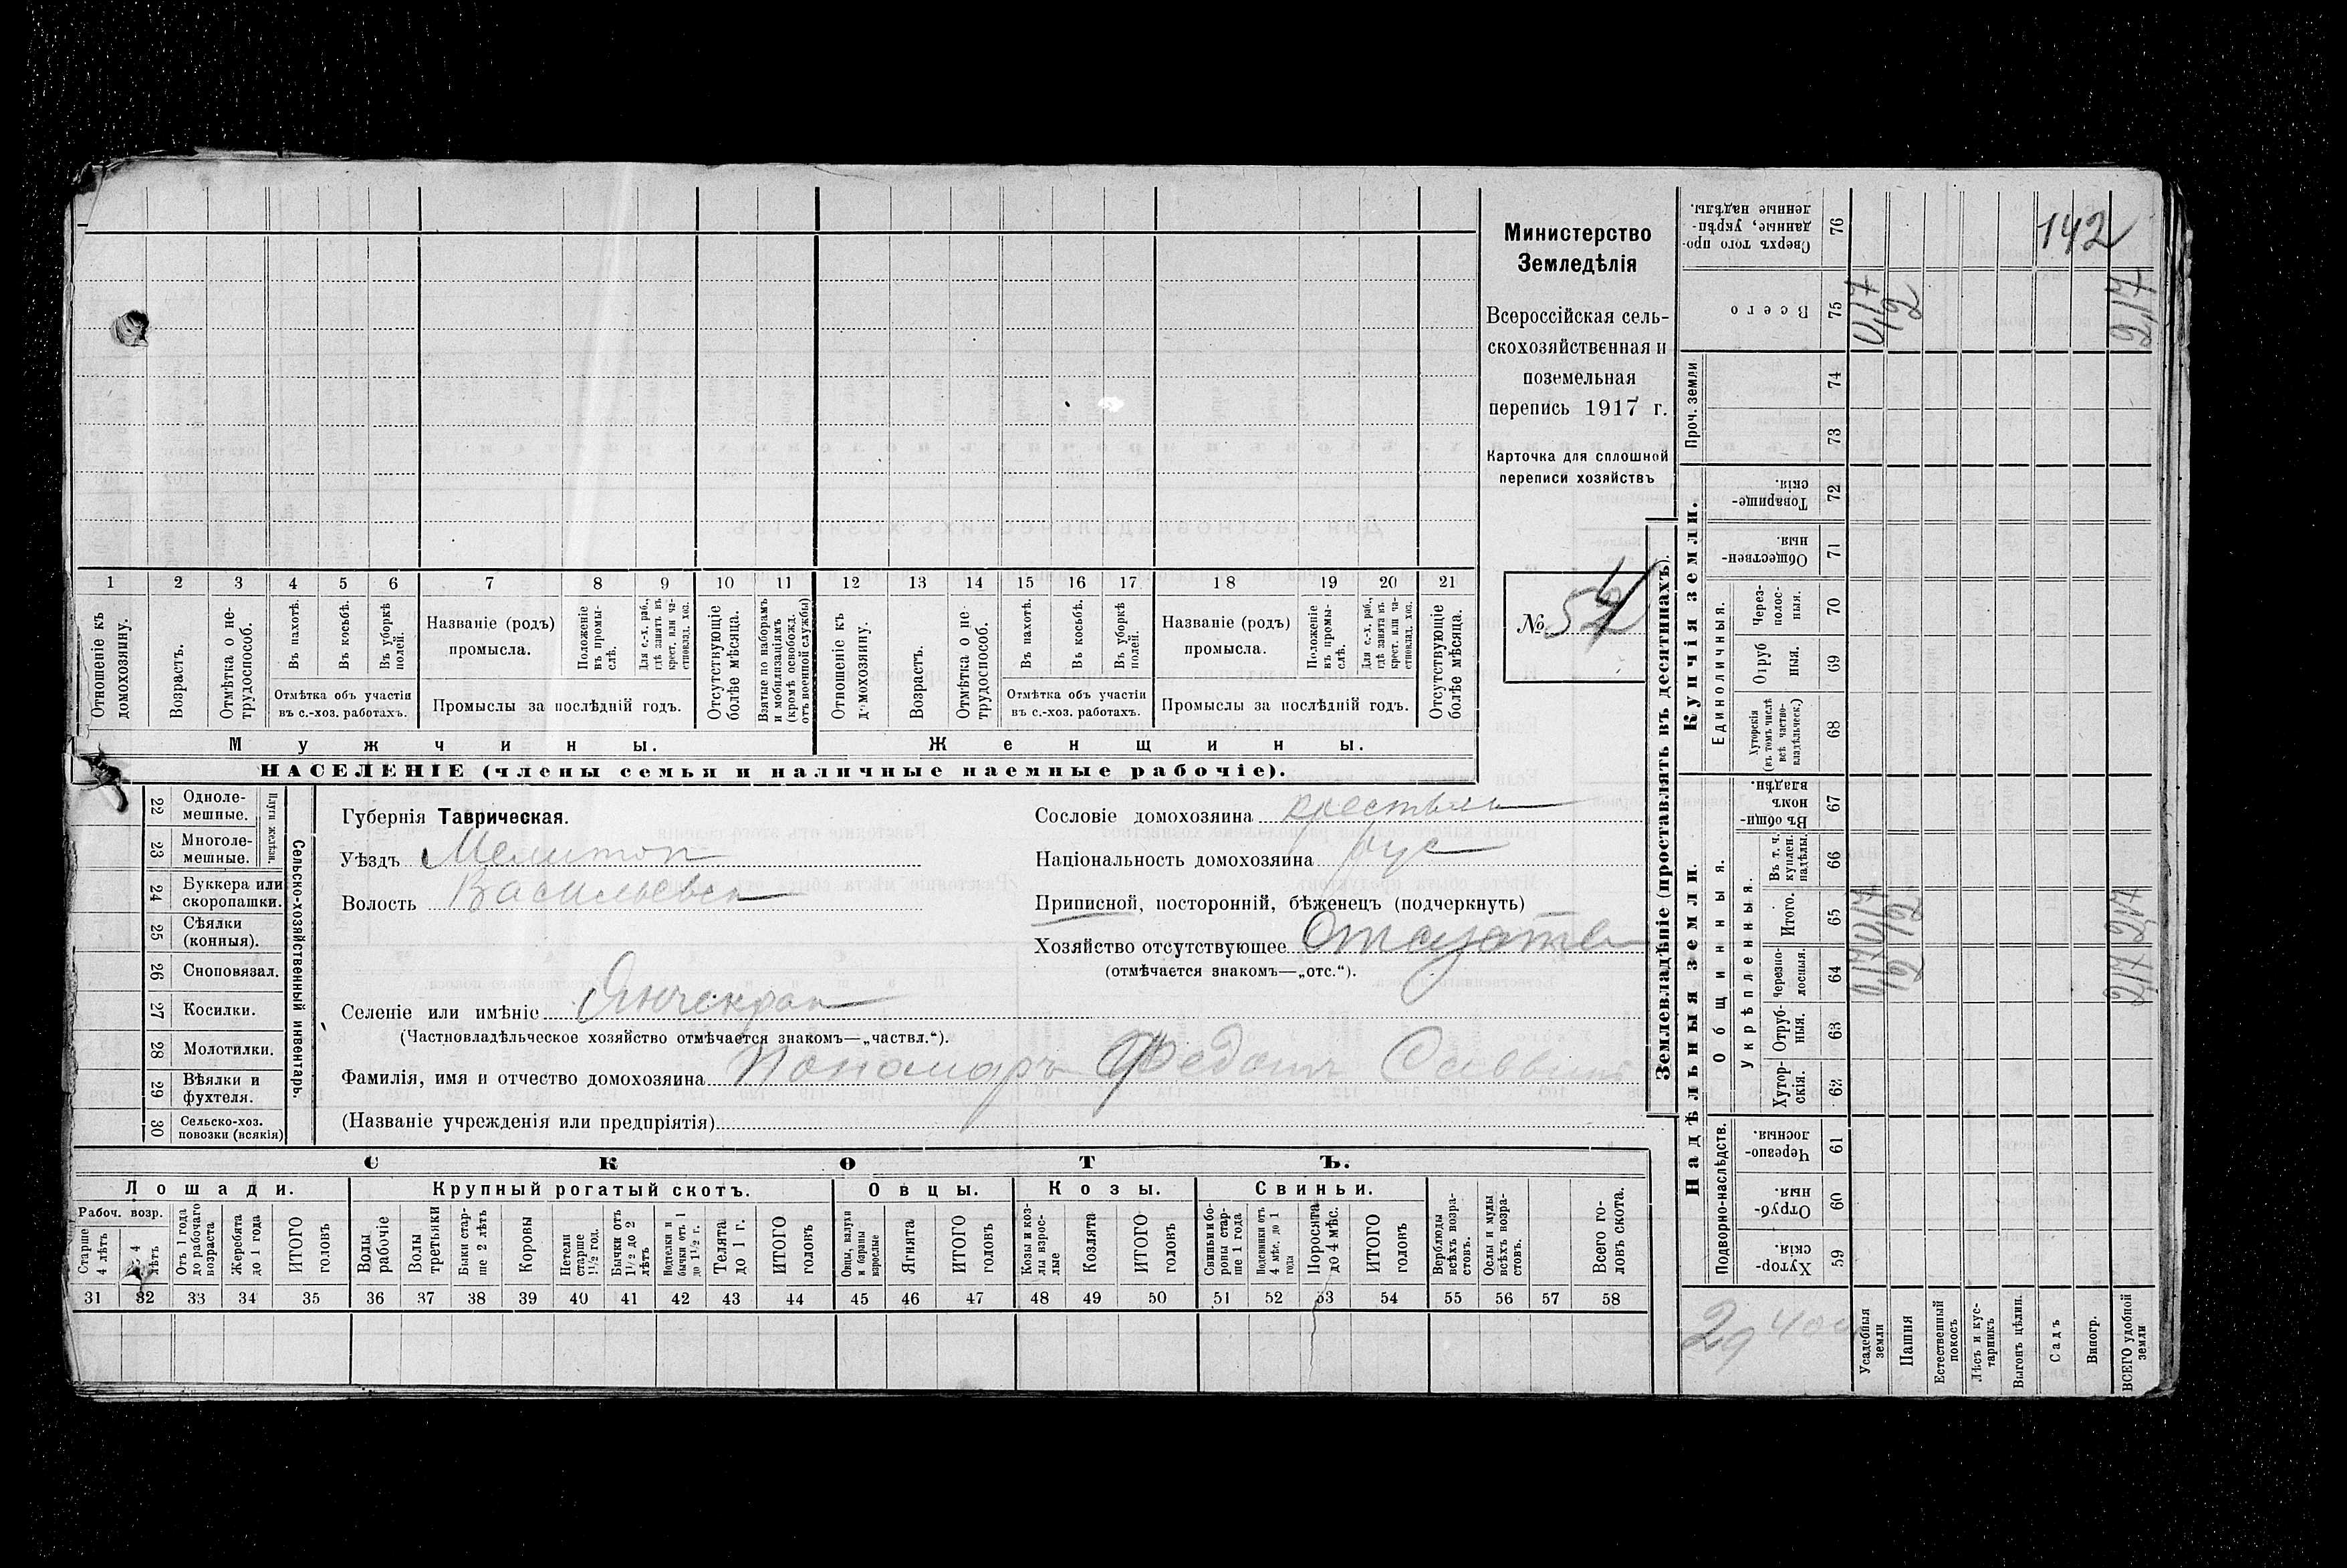 1 2 3 4 5 6 7 8 9 10 11 12 13 14 15 16 17 18 19 20 21
Отношеніе къ домохозяину.
Возрастъ.
Отмѣтка о не-
трудоспособ.
Въ пахотѣ.
Въ косьбѣ.
Въ уборкѣ полей.
Отмѣтка объ участіи
въ с.-хоз. работахъ.
Названіе (родъ)
промысла.
Положеніе въ промы-
слѣ.
Для с.-х. раб.,
гдѣ занятъ въ
крест. или ча-
стновлад. хоз.
Промыслы за послѣдній годъ.
Отсутствующіе
болѣе мѣсяца.
Взятые по наборамъ
и мобилизаціямъ
(кромѣ освобожд.
отъ военной службы)
Отношеніе къ
домохозяину.
Возрастъ.
Отмѣтка о не
трудоспособ.
Въ пахотѣ.
Въ косьбѣ.
Въ уборкѣ
полей.
Отмѣтка объ участіи
въ с.-хоз. работахъ.
Названіе (родъ)
промысла.
Положеніе
въ промы-
слѣ.
Для с.-х. раб.,
гдѣ занята въ
крест. или ча-
стновлад. хоз.
Промыслы за послѣдній годъ.
Отсутствующіе
болѣе мѣсяца.
Мужчины.
Женщины.
НАСЕЛЕНІЕ (члены семьи и наличные наемные рабочіе).
Министерство
Земледѣлія
Всероссійская сель-
скохозяйственная и
поземельная
перепись 1917 г.
Карточка для сплошной
переписи хозяйствъ
№
Сельско-хозяйственный инвентарь.
Плуги желѣзн.
22 Одноле-
мешные.
23 Многоле-
мешные.
24 Буккера или
скоропашки.
25 Сѣялки
(конныя).
26 Сноповязал.
27 Косилки.
28 Молотилки.
29 Вѣялки и
фухтеля.
30 Сельско-хоз.
повозки (всякія)
Губернія Таврическая.
Уѣздъ Мелитоп
Волость Васильевск
Селеніе или имѣніе Янчекрак
(Частновладѣльческое хозяйство отмѣчается знакомъ—„частвл.“).
Фамилія, имя и отчество домохозяина Пономарь Федот Саввич
(Названіе учрежденія или предпріятія)
Сословіе домохозяина крестьян
Національность домохозяина рус
Приписной, посторонній, бѣженецъ (подчеркнуть)
Хозяйство отсутствующее Отсутств
(отмѣчается знакомъ—„отс.“).
СКОТЪ.
Лошади.
Крупный рогатый скотъ.
Овцы.
Козы.
Свиньи.
Рабоч. возр.
Старше
4 лѣтъ
4
лѣтъ
Отъ 1 года
до рабочаго
возраста
Жеребята
до 1 года
ИТОГО
головъ
Волы
рабочіе
Волы
третьяки
Быки стар-
ше 2 лѣтъ
Коровы
Нетели
старше
1½ год.
Бычки отъ
1½ до 2
лѣтъ
Подтелки и
бычки отъ 1
до 1½ г.
Телята
до 1 г.
ИТОГО
головъ
Овцы, валухи
и бараны
взрослые
Ягнята
ИТОГО
головъ
Козы и коз-
лы взрос-
лые
Козлята
ИТОГО
головъ
Свиньи и бо-
ровы стар-
ше 1 года
Подсвинки отъ
4 мѣс. до 1
года
Поросята
до 4 мѣс.
ИТОГО
головъ
Верблюды
всѣхъ возра-
стовъ.
Ослы и мулы
всѣхъ возра-
стовъ.
Всего го-
ловъ скота.
31 32 33 34 35 36 37 38 39 40 41 42 43 44 45 46 47 48 49 50 51 52 53 54 55 56 57 58
Землевладѣніе (проставлять въ десятинахъ).
Купчія земли.
Надѣльныя земли.
Сверхъ того про-
данные, укрѣп-
ленные надѣлы. 76
142
Всего 75
Проч. земли 74
73
Товарище-
скія. 72
Обществен-
ныя. 71
Единоличныя.
Через-
полос-
ныя. 70
Отруб
ныя. 69
Хуторскія
(въ томъ числѣ
всѣ частно-
владѣльческ.) 68
Общинныя.
Въ общи-
номъ
владѣн. 67
Укрѣпленныя.
Въ т. ч.
куплен.
надѣлы. 66
Итого. 65
Черезпо-
лосныя. 64
Отруб-
ныя. 63
Хутор-
скія. 62
Подворно-наслѣдств.
Черезпо-
лосныя. 61
Отруб-
ныя. 60
Хутор-
скія. 59
Усадебныя
земли
Пашня
Естественный
покосъ
Лѣсъ и кус-
тарникъ
Выгонъ цѣлин.
Садъ
Виногр.
ВСЕГО удобной
земли